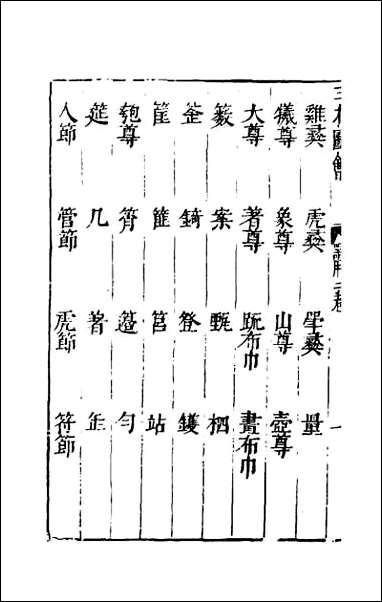 三才圖會 器用二卷 一
雞彝 虎彝 斝彝 量
犧尊 象尊 山尊 壺尊
大尊 著尊 疏布巾 畫布巾
籔 案 甒 柶
釜 錡 登 鑊
筐 篚 筥 站
匏尊 筲 勺
筵 几 蓍 缶
人節 管節 虎節 符節